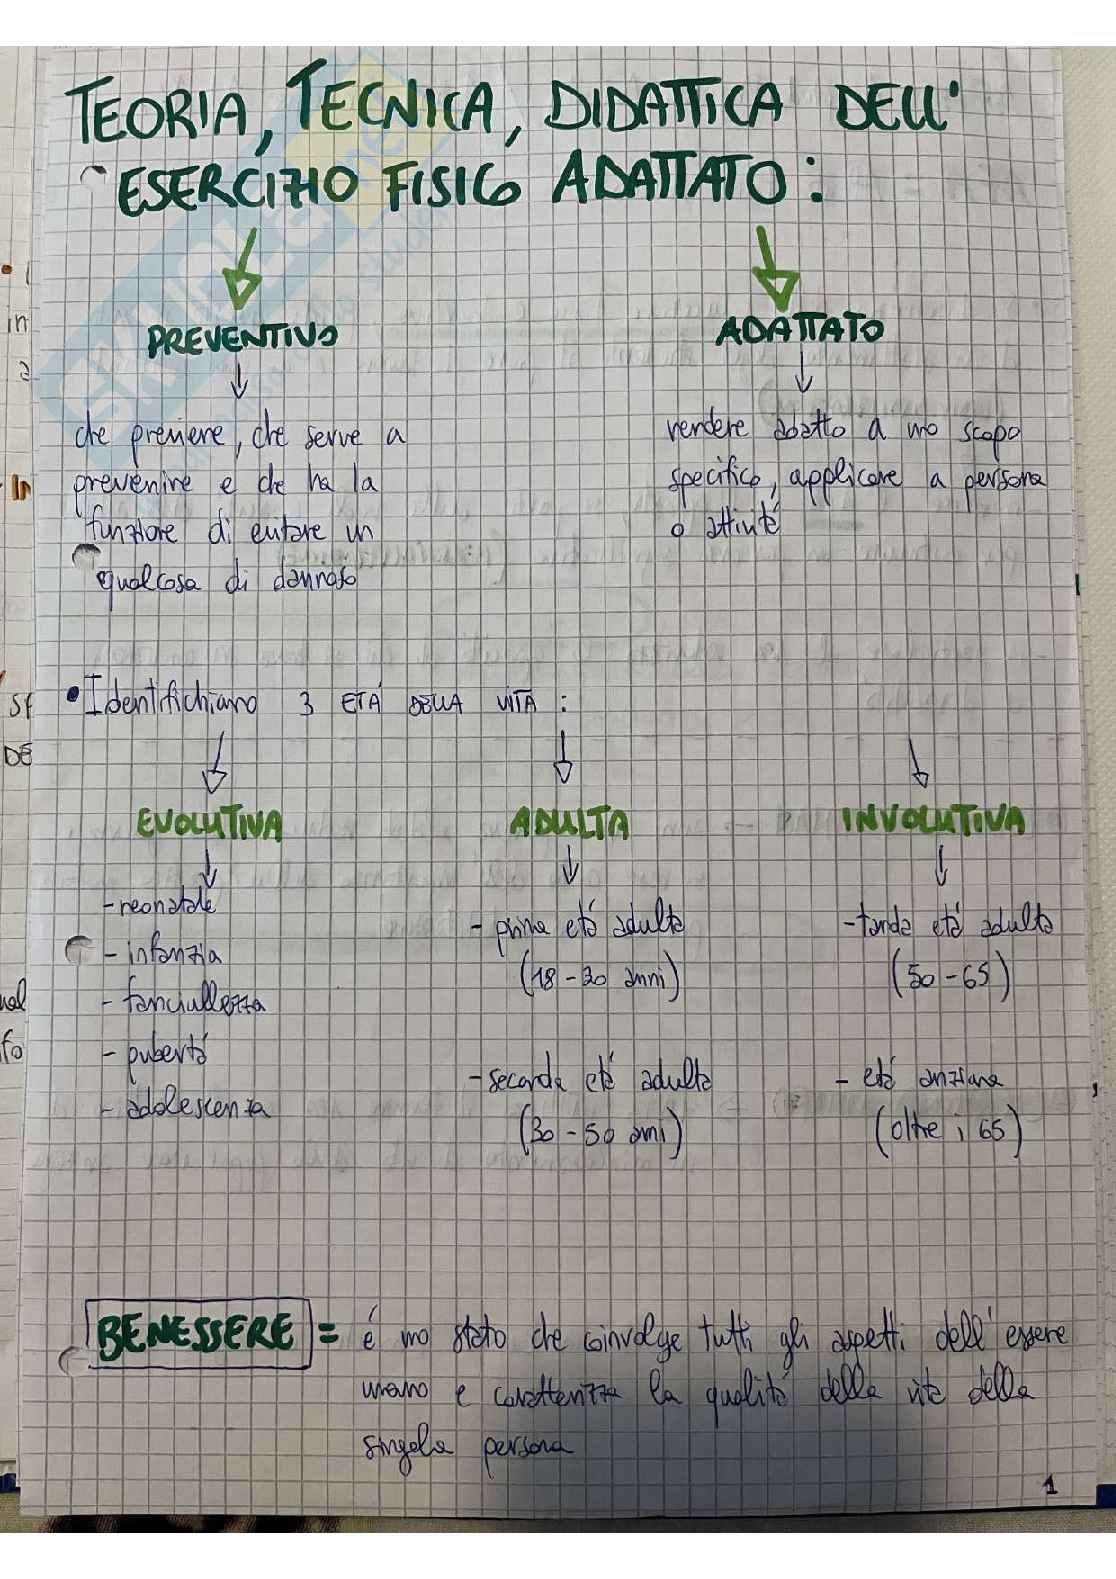 TEORIA, TECNICA, DIDATTICA DELL'
ESERCIZIO FISICO ADATTATO:
PREVENTIVO
ADATTATO
che previene, che serve a
prevenire e che ha la
funzione di evitare un
qualcosa di dannoso
rendere adatto a uno scopo
specifico, applicare a persona
o attività
• Identifichiamo 3 ETÀ DELLA VITA:
EVOLUTIVA
ADULTA
INVOLUTIVA
- neonatale
- infanzia
- fanciullezza
- pubertá
- adolescenza
- prima etá adulta
(18-30 anni)
- seconda etá adulta
(30-50 anni)
- tarda etá adulta
(50-65)
- etá anziana
(oltre i 65)
BENESSERE = é uno stato che coinvolge tutti gli aspetti dell'essere
umano e caratterizza la qualitá della vita della
singola persona
1